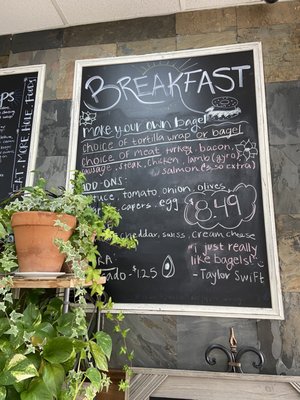 BREAKFAST
Make your own bagel
choice of tortilla wrap or bagel
choice of meat: turkey, bacon,
sausage, steak, chicken, lamb (gyro)
salmon ($ extra)
ADD-ONS:
tomato, onion, olives,
capers, egg
$8.49
cheddar, swiss, cream cheese
- $1.25
"I just really
like bagels"
- Taylor Swift
EAT MORE